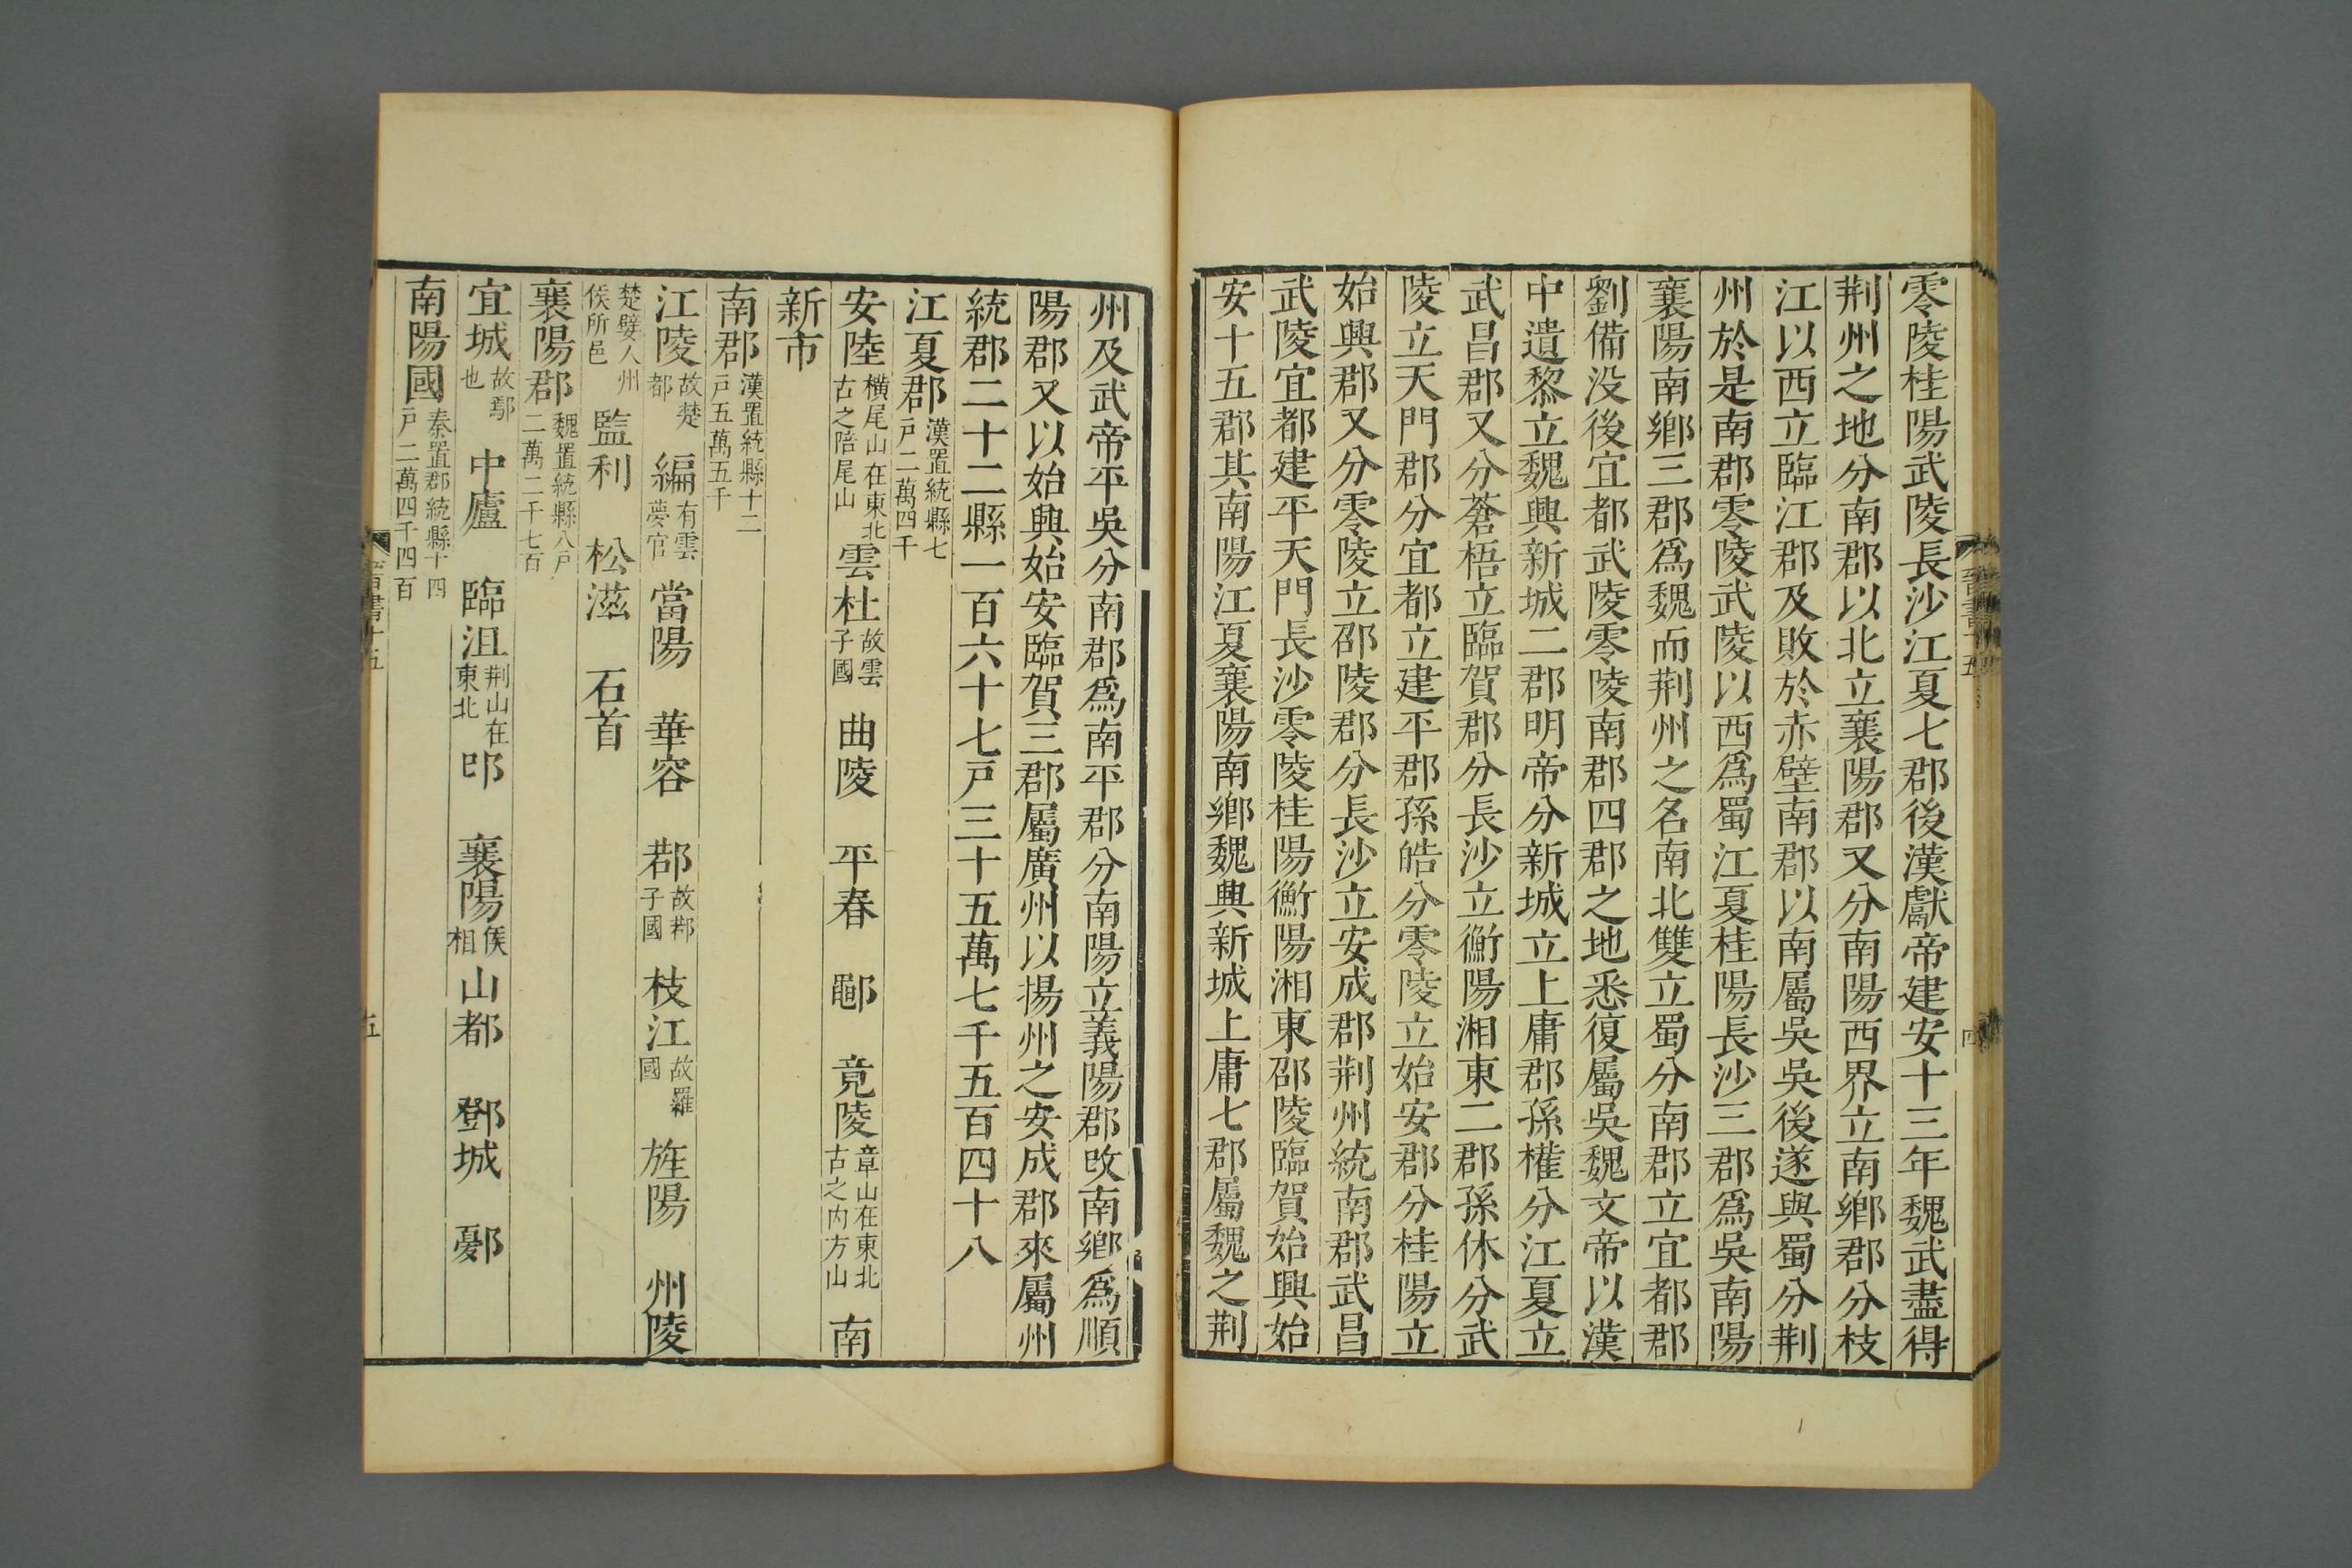 零陵桂陽武陵長沙江夏七郡後漢獻帝建安十三年魏武盡得
荆州之地分南郡以北立襄陽郡又分南陽西界立南鄉郡分枝
江以西立臨江郡及敗於赤壁南郡以南屬吳吳後遂與蜀分荆
州於是南郡零陵武陵以西爲蜀江夏桂陽長沙三郡爲吳南陽
襄陽南鄉三郡爲魏而荆州之名南北雙立蜀分南郡立宜都郡
劉備没後宜都武陵零陵南郡四郡之地悉復屬吳魏文帝以漢
中遺黎立魏興新城二郡明帝分新城立上庸郡孫權分江夏立
武昌郡又分蒼梧立臨賀郡分長沙立衡陽湘東二郡孫休分武
陵立天門郡分宜都立建平郡孫皓分零陵立始安郡分桂陽立
始興郡又分零陵立邵陵郡分長沙立安成郡荆州統南郡武昌
武陵宜都建平天門長沙零陵桂陽衡陽湘東邵陵臨賀始興始
安十五郡其南陽江夏襄陽南鄉魏興新城上庸七郡屬魏之荆
州及武帝平吳分南郡爲南平郡分南陽立義陽郡改南鄉爲順
陽郡又以始興始安臨賀三郡屬廣州以揚州之安成郡來屬州
統郡二十二縣一百六十七戸三十五萬七千五百四十八
江夏郡漢置統縣七戸二萬四千
安陸橫尾山在東北古之陪尾山 雲杜故雲子國 曲陵 平春 鄳 竟陵章山在東北古之内方山 南
新市
南郡漢置統縣十二戸五萬五千
江陵故楚都 編有雲夢官 當陽 華容 鄀故鄀子國 枝江故羅國 旌陽 州陵
楚嬖人州侯所邑 監利 松滋 石首
襄陽郡魏置統縣八戸二萬二千七百
宜城故鄢也 中廬 臨沮荆山在東北 邔 襄陽侯相 山都 鄧城 鄾
南陽國秦置郡統縣十四戸二萬四千四百
晉書十五
五